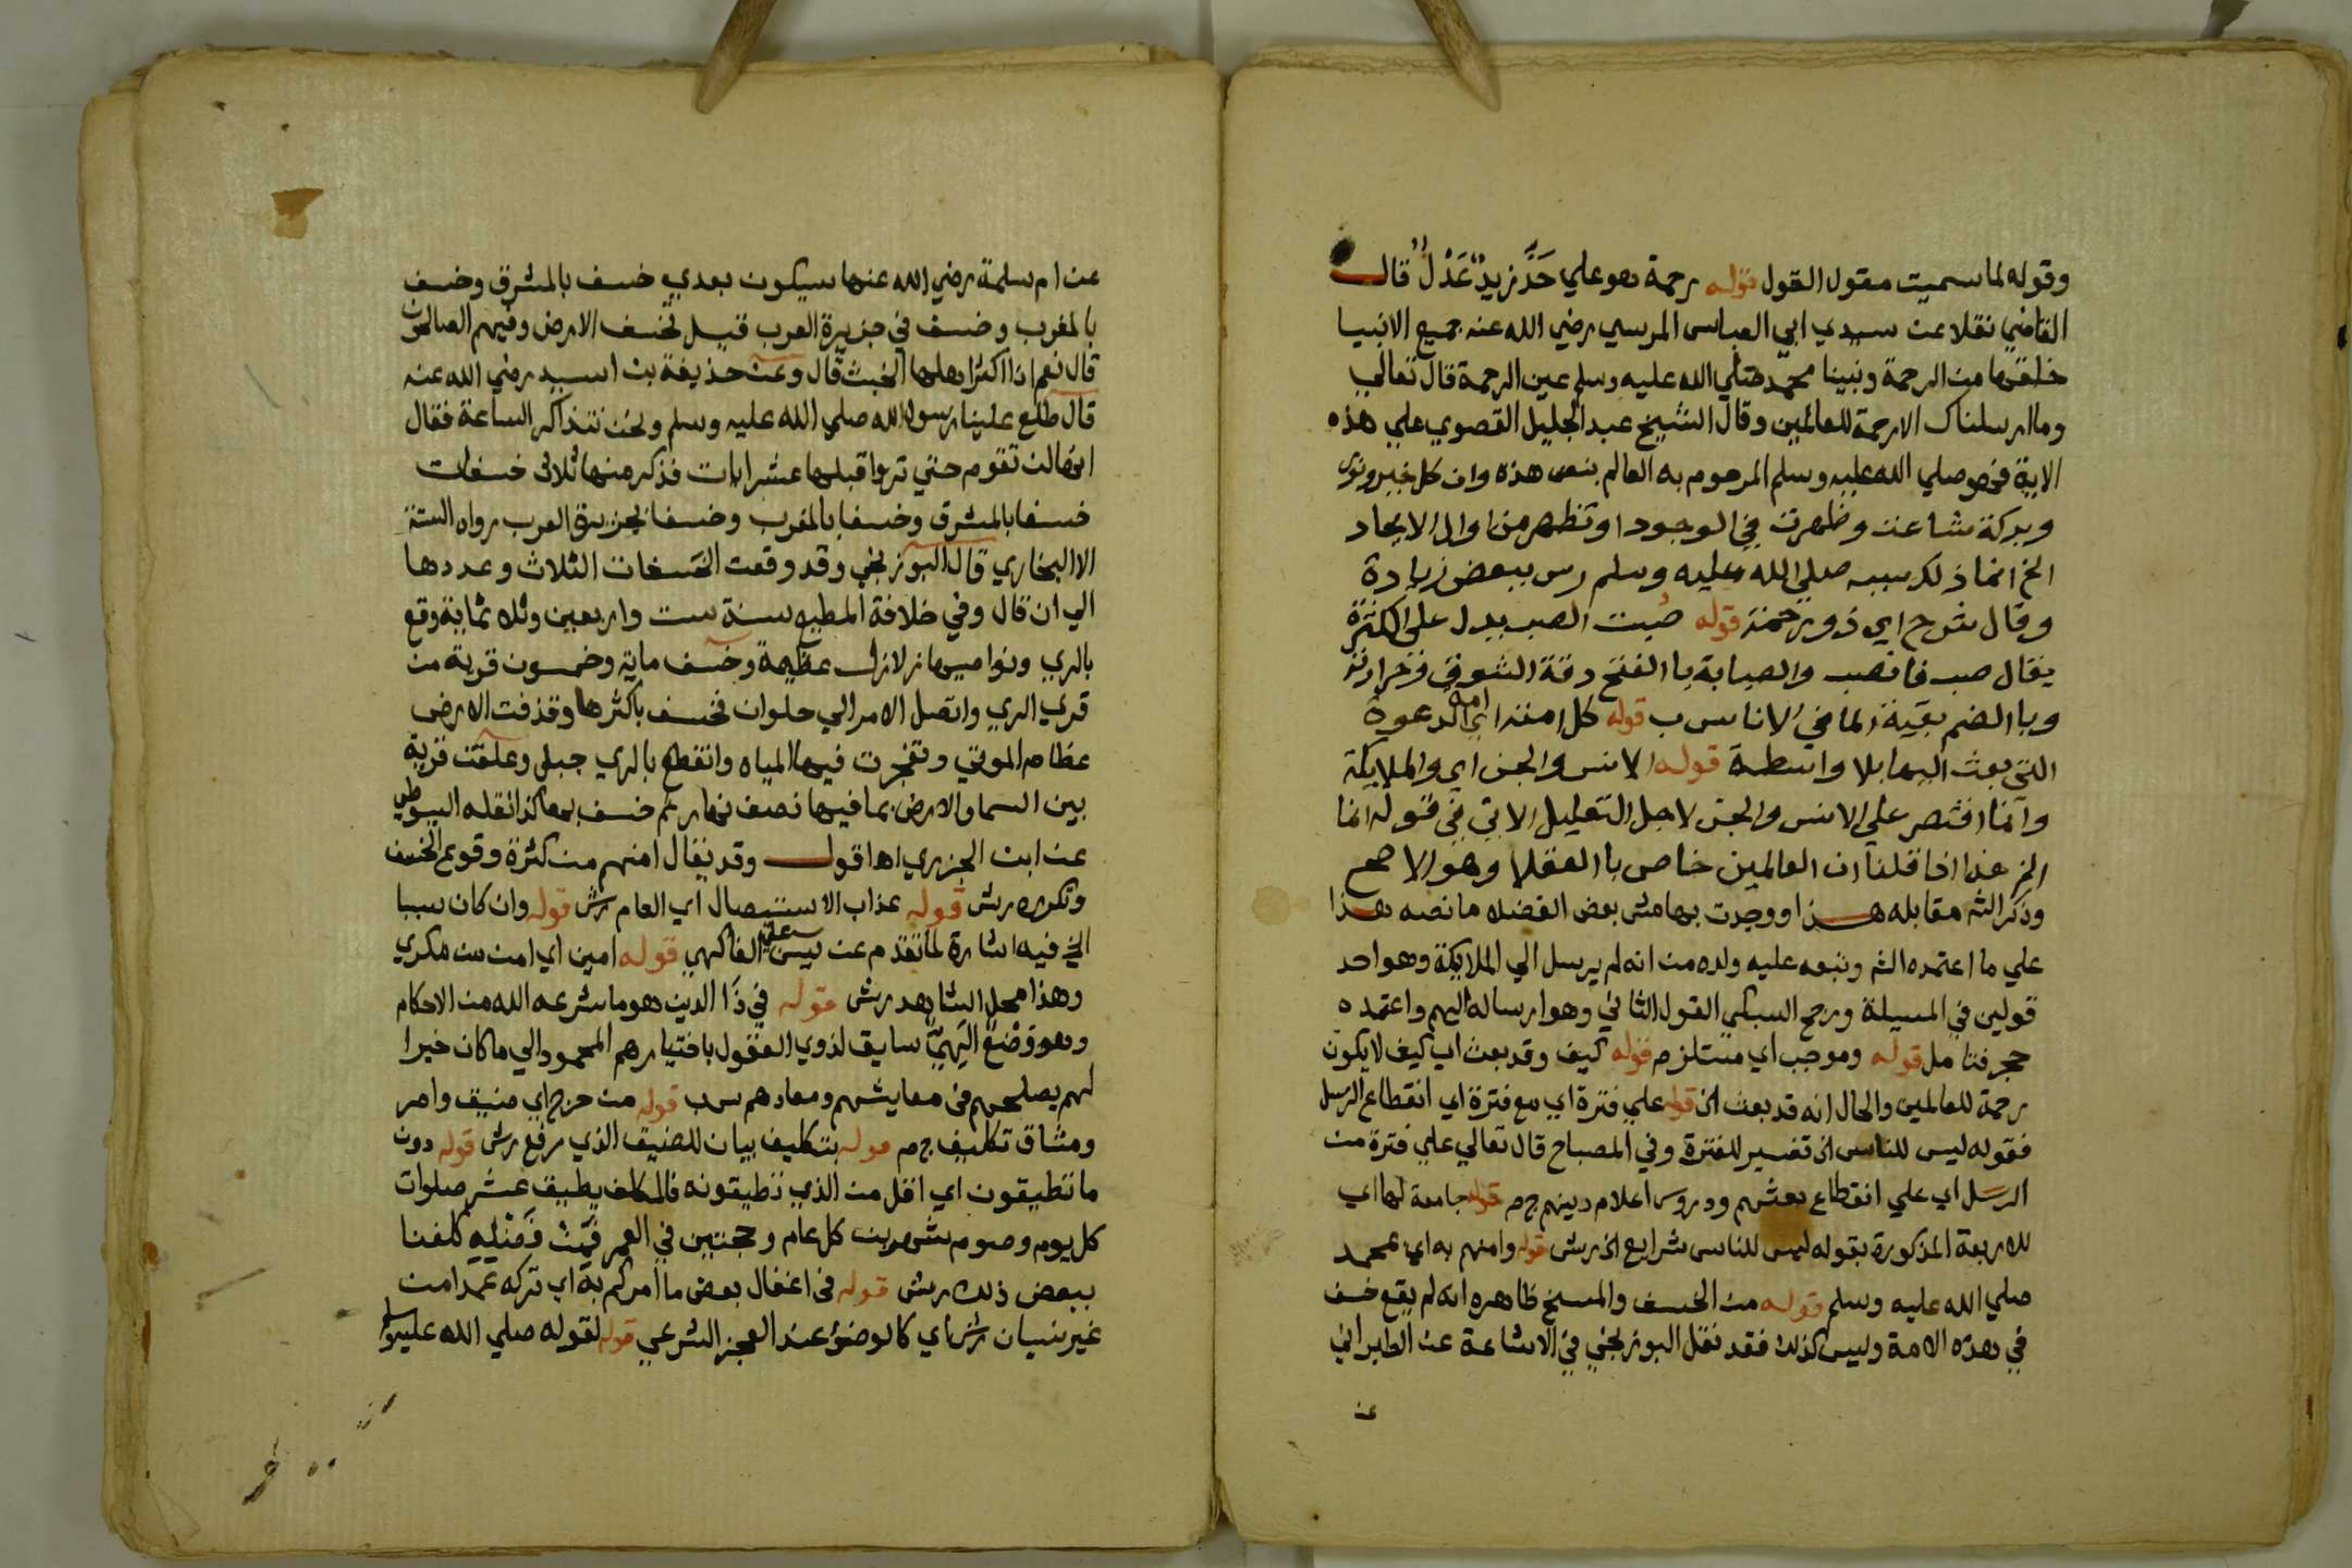 وقوله لما سميت مقول القول قوله رحمة هو علي حَدَّ زيدٌ عَدْلٌ قال
القاضي نقلا عن سيدي ابي العباس المرسي رضي الله عنه جميع الانبيا
خلقها من الرحمة ونبينا محمد صلي الله عليه وسلم عين الرحمة قال تعالي
وما ارسلناك الا رحمة للعالمين وقال الشيخ عبد الجليل القصوي علي هذه
الاية فهو صلي الله عليه وسلم المرحوم به العالم بنص هذه وان كل خير ونور
وبركة شاعت وظهرت في الوجود او تظهر من اول الايجاد
الخ انما ذلك بسببه صلي الله عليه وسلم رس ببعض زيادة
وقال شوح اي ذو رحمة قوله صبت الصب يدل علي الكثرة
يقال صب فانصب والصبابة با الفتح دقة الشوق وحرارته
وبا الضم بقية الما في الاناس ب قوله كل امته اي امة الدعوة
التي بعث اليها بلا واسطة قوله الانس والجن اي والملايكة
وانما اقتصر علي الانس والجن لاجل التعليل الاتي في قوله انما
الخ هذا اذا قلنا ان العالمين خاص با العقلا وهو الاصح
وذكر الشم مقابله هذا ووجدت بهامش بعض الفضلا ما نصه هذا
علي ما اعتمده الشم وتبعه عليه ولده من انه لم يرسل الي الملايكة وهو احد
قولين في المسيلة ورجح السبكي القول الثاني وهو ارساله اليهم واعتمده
حجر فتامل قوله وموجب اي مستلزم قوله كيف وقد بعث اي كيف لا يكون
رحمة للعالمين والحال انه قد بعث الخ قوله علي فترة اي مع فترة اي انقطاع الرسل
فقوله ليس للناس الخ تفسير للفترة وفي المصباح قال تعالي علي فترة من
الرسل اي علي انقطاع بعثهم ودروس اعلام دينهم ج م قوله جامعة لها اي
للاربعة المذكورة بقوله ليس للناس شرايع الخ رش قوله وامنهم به اي بمحمد
صلي الله عليه وسلم قوله من الخسف والمسخ ظاهره انه لم يقع خسف
في هذه الامة وليس كذلك فقد نقل البوزنجي في الاشاعة عن الطبراني
عن
عن ام سلمة رضي الله عنها سيكون بعدي خسف بالمشرق وخسف
بالمغرب وخسف في جزيرة العرب قيل تخسف الارض وفيهم الصالحون
قال نعم اذا اكثر اهلها الخبث قال وعن حذيفة بن اسيد رضي الله عنه
قال طلع علينا رسول الله صلي الله عليه وسلم ونحن نتذاكر الساعة فقال
انها لن تقوم حتي تروا قبلها عشر ايات فذكر منها ثلاث خسفات
خسفا بالمشرق وخسفا بالمغرب وخسفا بجزيرة العرب رواه الستة
الا البخاري قال البوزنجي وقد وقعت الخسفات الثلاث وعددها
الي ان قال وفي خلافة المطيع سنة ست واربعين وثلاثماية وقع
بالري ونواحيها زلازل عظيمة وخسف ماية وخمسون قرية من
قري الري واتصل الامر الي حلوان فخسف باكثرها وقذفت الارض
عظام الموتي وتفجرت فيها المياه وانقطع بالري جبل وعلقت قرية
بين السما والارض بما فيها نصف نهار ثم خسف بها كذا نقله السيوطي
عن ابن الجزري اها اقول وقد يقال امنهم من كثرة وقوع الخسف
وتكرره رش قوله عذاب الاستيصال اي العام رش قوله وان كان سببا
الخ فيه اشارة لما تقدم عن يس علي الفاكهي قوله امين اي امن من مكري
وهذا محل الشاهد رش قوله في ذا الدين هو ما شرعه الله من الاحكام
وهو وَضْعٌ الَهِيٌّ سايق لذوي العقول باختيارهم المحمود الي ما كان خيرا
لهم يصلحهم في معايشهم ومعادهم س ب قوله من حرج اي ضيق وامر
ومشاق تكليف ج م قوله بتكليف بيان للضيق الذي رفع رش قوله دون
ما تطيقون اي اقل من الذي تطيقونه فالمكلف يطيق عشر صلوات
كل يوم وصوم شهرين كل عام وحجتين في العمر فَمِنْ فَضْلِهِ كلفنا
ببعض ذلك رش قوله في اغفال بعض ما امركم به اي تركه عمدا من
غير نسيان رش اي كالوضوء عند العجز الشرعي قوله لقوله صلي الله عليه وسلم